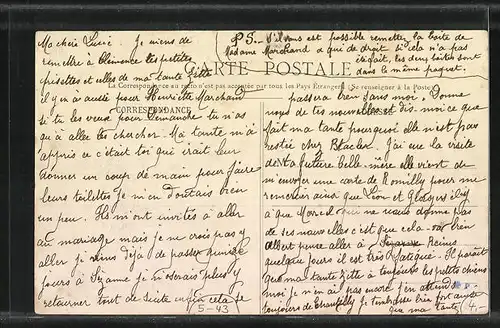 PS. S'il vous est possible remettez la boite de
Madame Marchand a qui de droit si cela n'a pas
les deux boites sont
dans le même paquet.
CARTE POSTALE
La Correspondance au recto n'est pas acceptée par tous les Pays Étrangers (Se renseigner à la Poste)
CORRESPONDANCE
Ma chère Lucie Je viens de
remettre à Clémence les petites
et celles de ma tante
il y en a aussi pour Henriette Marchand
si tu les veux pour Dimanche tu n'as
qu'à aller les chercher. Ma tante m'a
appris ce c'était toi qui irait leur
donner un coup de main pour faire
leurs toilettes je m'en doutais bien
un peu. Ils m'ont invités à aller
au mariage mais je ne crois pas y
aller je viens déjà de passer quinze
jours à Sézanne je n'oserais plus y
retourner tout de suite enfin cela se
5-43
passera bien sans moi. Donne
nous de tes nouvelles et dis-moi ce que
fait ma tante pourquoi elle n'est pas
restée chez. J'ai eu la visite
de ta future belle-mère elle vient de
m'envoyer une carte de Romilly pour me
remercier ainsi que Léon et Gladys il y
a que Marcel qui ne nous donne pas
de ses nouvelles c'est que cela va bien
Albert pense aller à Reims
quelque jours il est très fatigué. Il paraît
que ma tante a toujours les petits chiens
moi je n'en ai pas encore j'en attends
toujours de Chantilly je t'embrasse bien fort ainsi
que ma tante